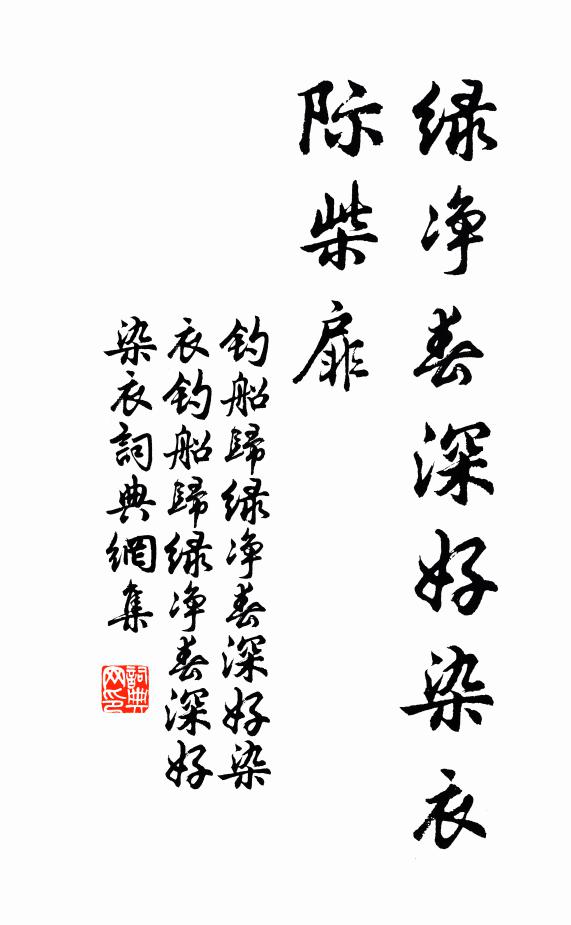 绿净春深好染衣
际柴扉
钓船歸绿净春深好染
衣钓船歸绿净春深好
染衣詞典網集
詞典
网印